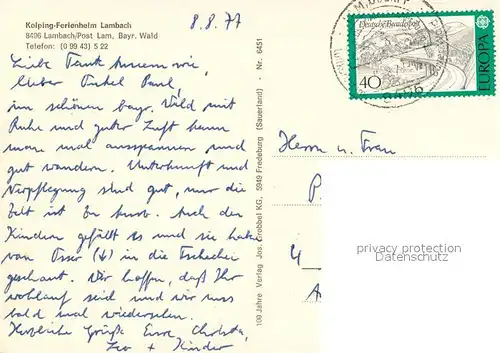 Kolping-Ferienheim Lambach
8496 Lambach/Post Lam, Bayr. Wald
Telefon: (0 99 43) 5 22
8.8.77
Liebe Tante
lieber Onkel Paul,
im schönen bayr. Wald mit
Ruhe und guter Luft kann
man mal ausspannen und
gut wandern. Unterkunft und
Verpflegung sind gut, nur die
Zeit ist zu kurz. Auch den
Kindern gefällt es und sie haben
vom Osser (↓) in die Tschechei
geschaut. Wir hoffen, daß Ihr
wohlauf seid und wir uns
bald mal wiedersehen.
Herzliche Grüße Eure Christa,
+ Kinder
100 Jahre Verlag Jos. Grobbel KG, 5949 Fredeburg (Sauerland) - Nr. 6451
Deutsche Bundespost
40
EUROPA
8496
Herrn u. Frau
P
4
A
privacy protection
Datenschutz